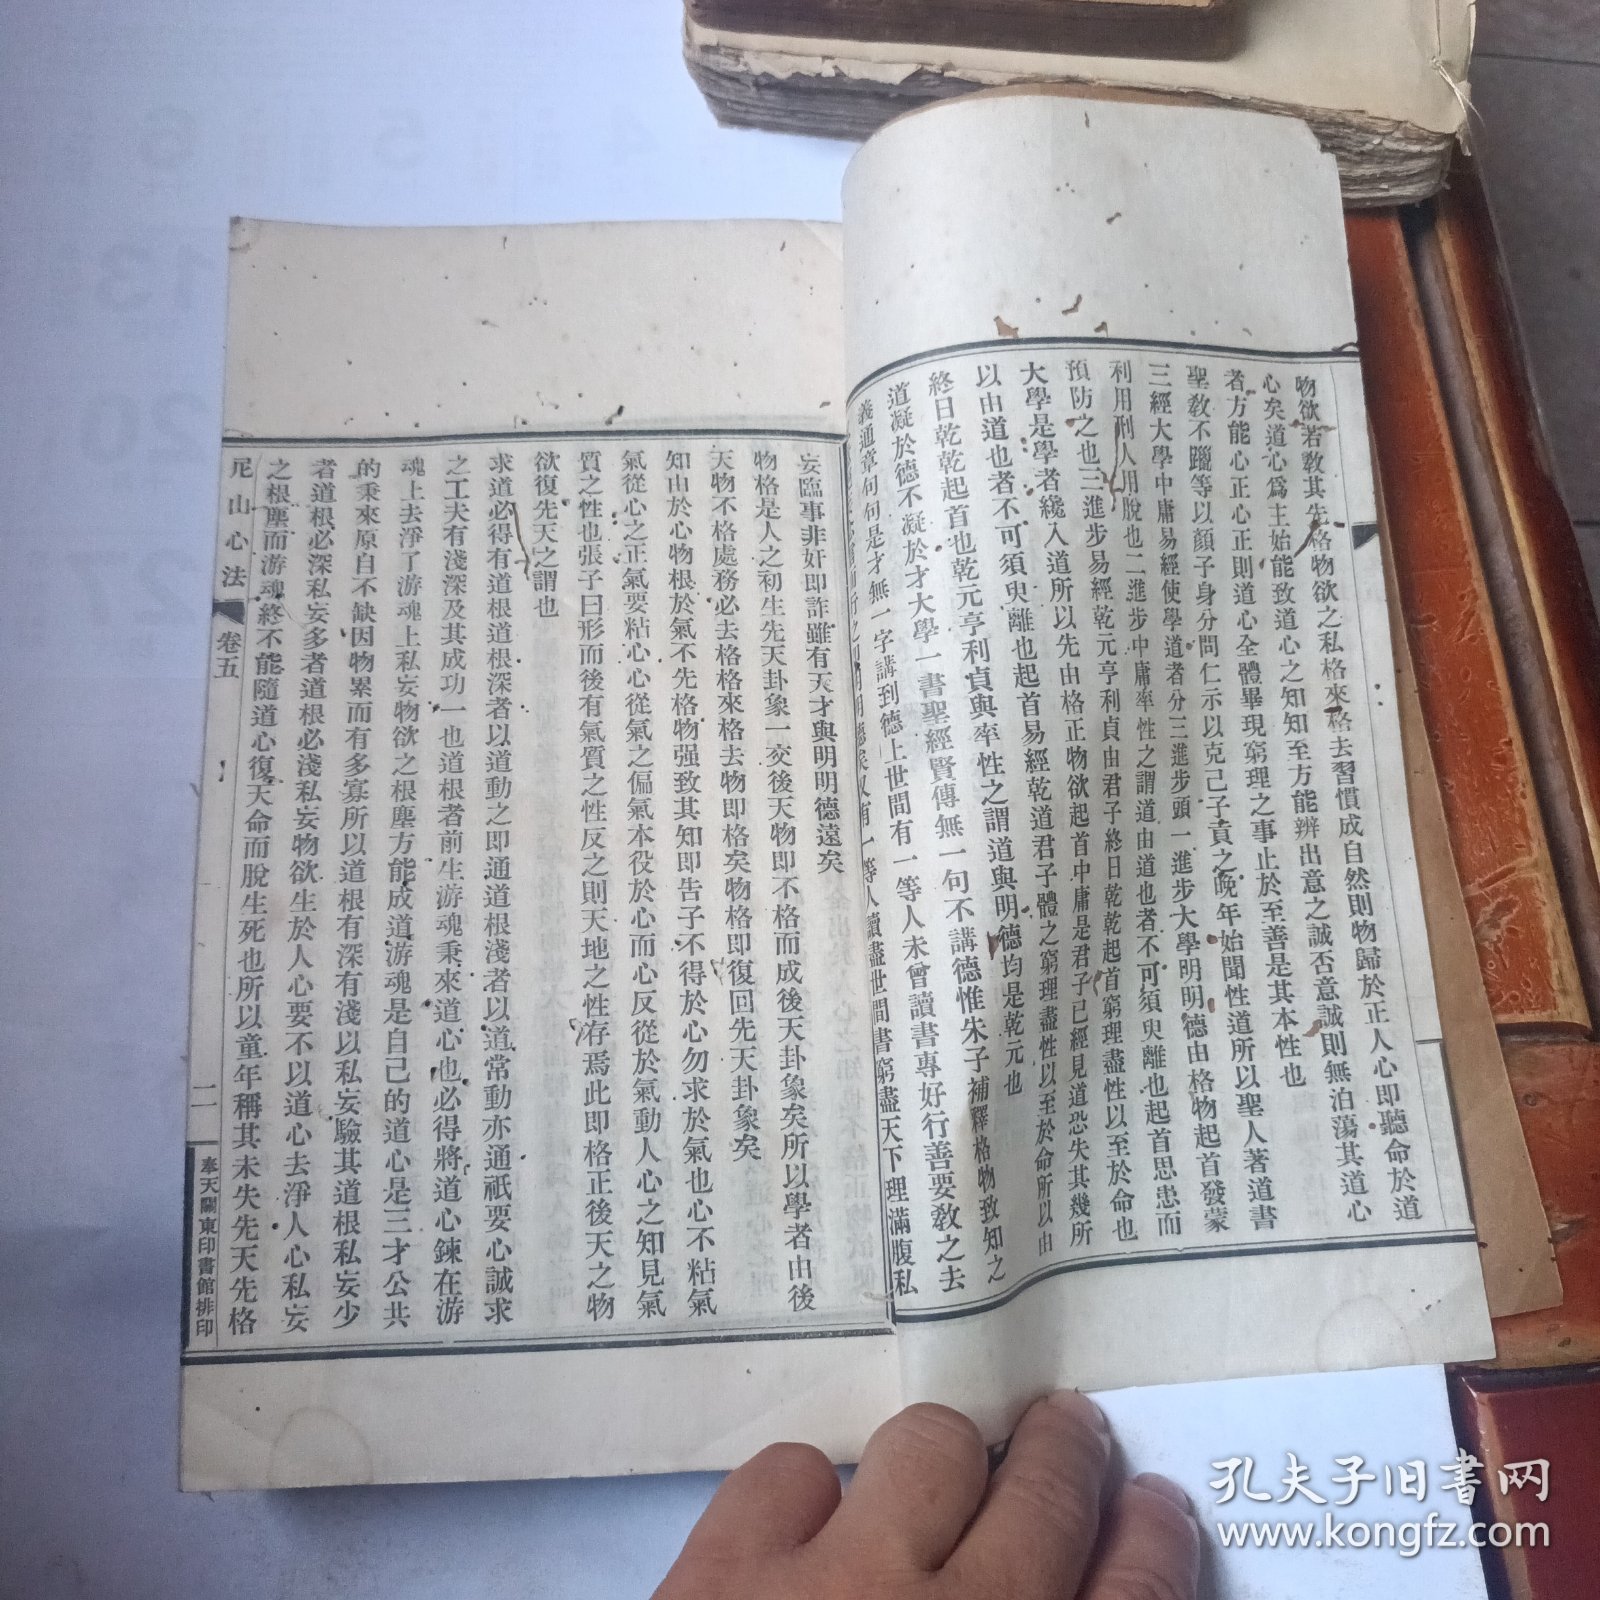 物欲若教其先格物欲之私格來格去習慣成自然則物歸於正人心即聽命於道
心矣道心爲主始能致道心之知知至方能辨出意之誠否意誠則無泊蕩其道心
者方能心正心正則道心全體畢現窮理之事止於至善是其本性也
聖教不躐等以顏子身分問仁示以克己子貢之晚年始聞性道所以聖人著道書
三經大學中庸易經使學道者分三進步頭一進步大學明明德由格物起首發蒙
利用刑人用脫也二進步中庸率性之謂道由道也者不可須臾離也起首思患而
預防之也三進步易經乾元亨利貞由君子終日乾乾起首窮理盡性以至於命也
大學是學者纔入道所以先由格正物欲起首中庸是君子已經見道恐失其幾所
以由道也者不可須臾離也起首易經乾道君子體之窮理盡性以至於命所以由
終日乾乾起首也乾元亨利貞與率性之謂道與明德均是乾元也
道凝於德不凝於才大學一書聖經賢傳無一句不講德惟朱子補釋格物致知之
義通章句句是才無一字講到德上世間有一等人未曾讀書專好行善要教之去
明明德矣又有一等人讀盡世間書窮盡天下理滿腹私
妄臨事非奸即詐雖有天才與明明德遠矣
物格是人之初生先天卦象一交後天物即不格而成後天卦象矣所以學者由後
天物不格處務必去格格來格去物即格矣物格即復回先天卦象矣
知由於心物根於氣不先格物强致其知即告子不得於心勿求於氣也心不粘氣
氣從心之正氣要粘心心從氣之偏氣本役於心而心反從於氣動人心之知見氣
質之性也張子曰形而後有氣質之性反之則天地之性存焉此即格正後天之物
欲復先天之謂也
求道必得有道根道根深者以道動之即通道根淺者以道常動亦通祇要心誠求
之工夫有淺深及其成功一也道根者前生游魂秉來道心也必得將道心鍊在游
魂上去淨了游魂上私妄物欲之根塵方能成道游魂是自己的道心是三才公共
的秉來原自不缺因物累而有多寡所以道根有深有淺以私妄驗其道根私妄少
者道根必深私妄多者道根必淺私妄物欲生於人心要不以道心去淨人心私妄
之根塵而游魂終不能隨道心復天命而脫生死也所以童年稱其未失先天先格
尼山心法
卷五
二
奉天關東印書館排印
孔夫子旧書网
www.kongfz.com